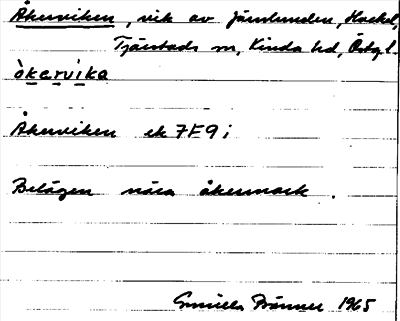 Åkerviken, vik av Järnlunden, Hackel,
Tjärstads sn, Kinda hd, Östgl.
òkervika
Åkerviken ek 7F9i
Belägen nära åkermark.
Gunilla Bränner 1965